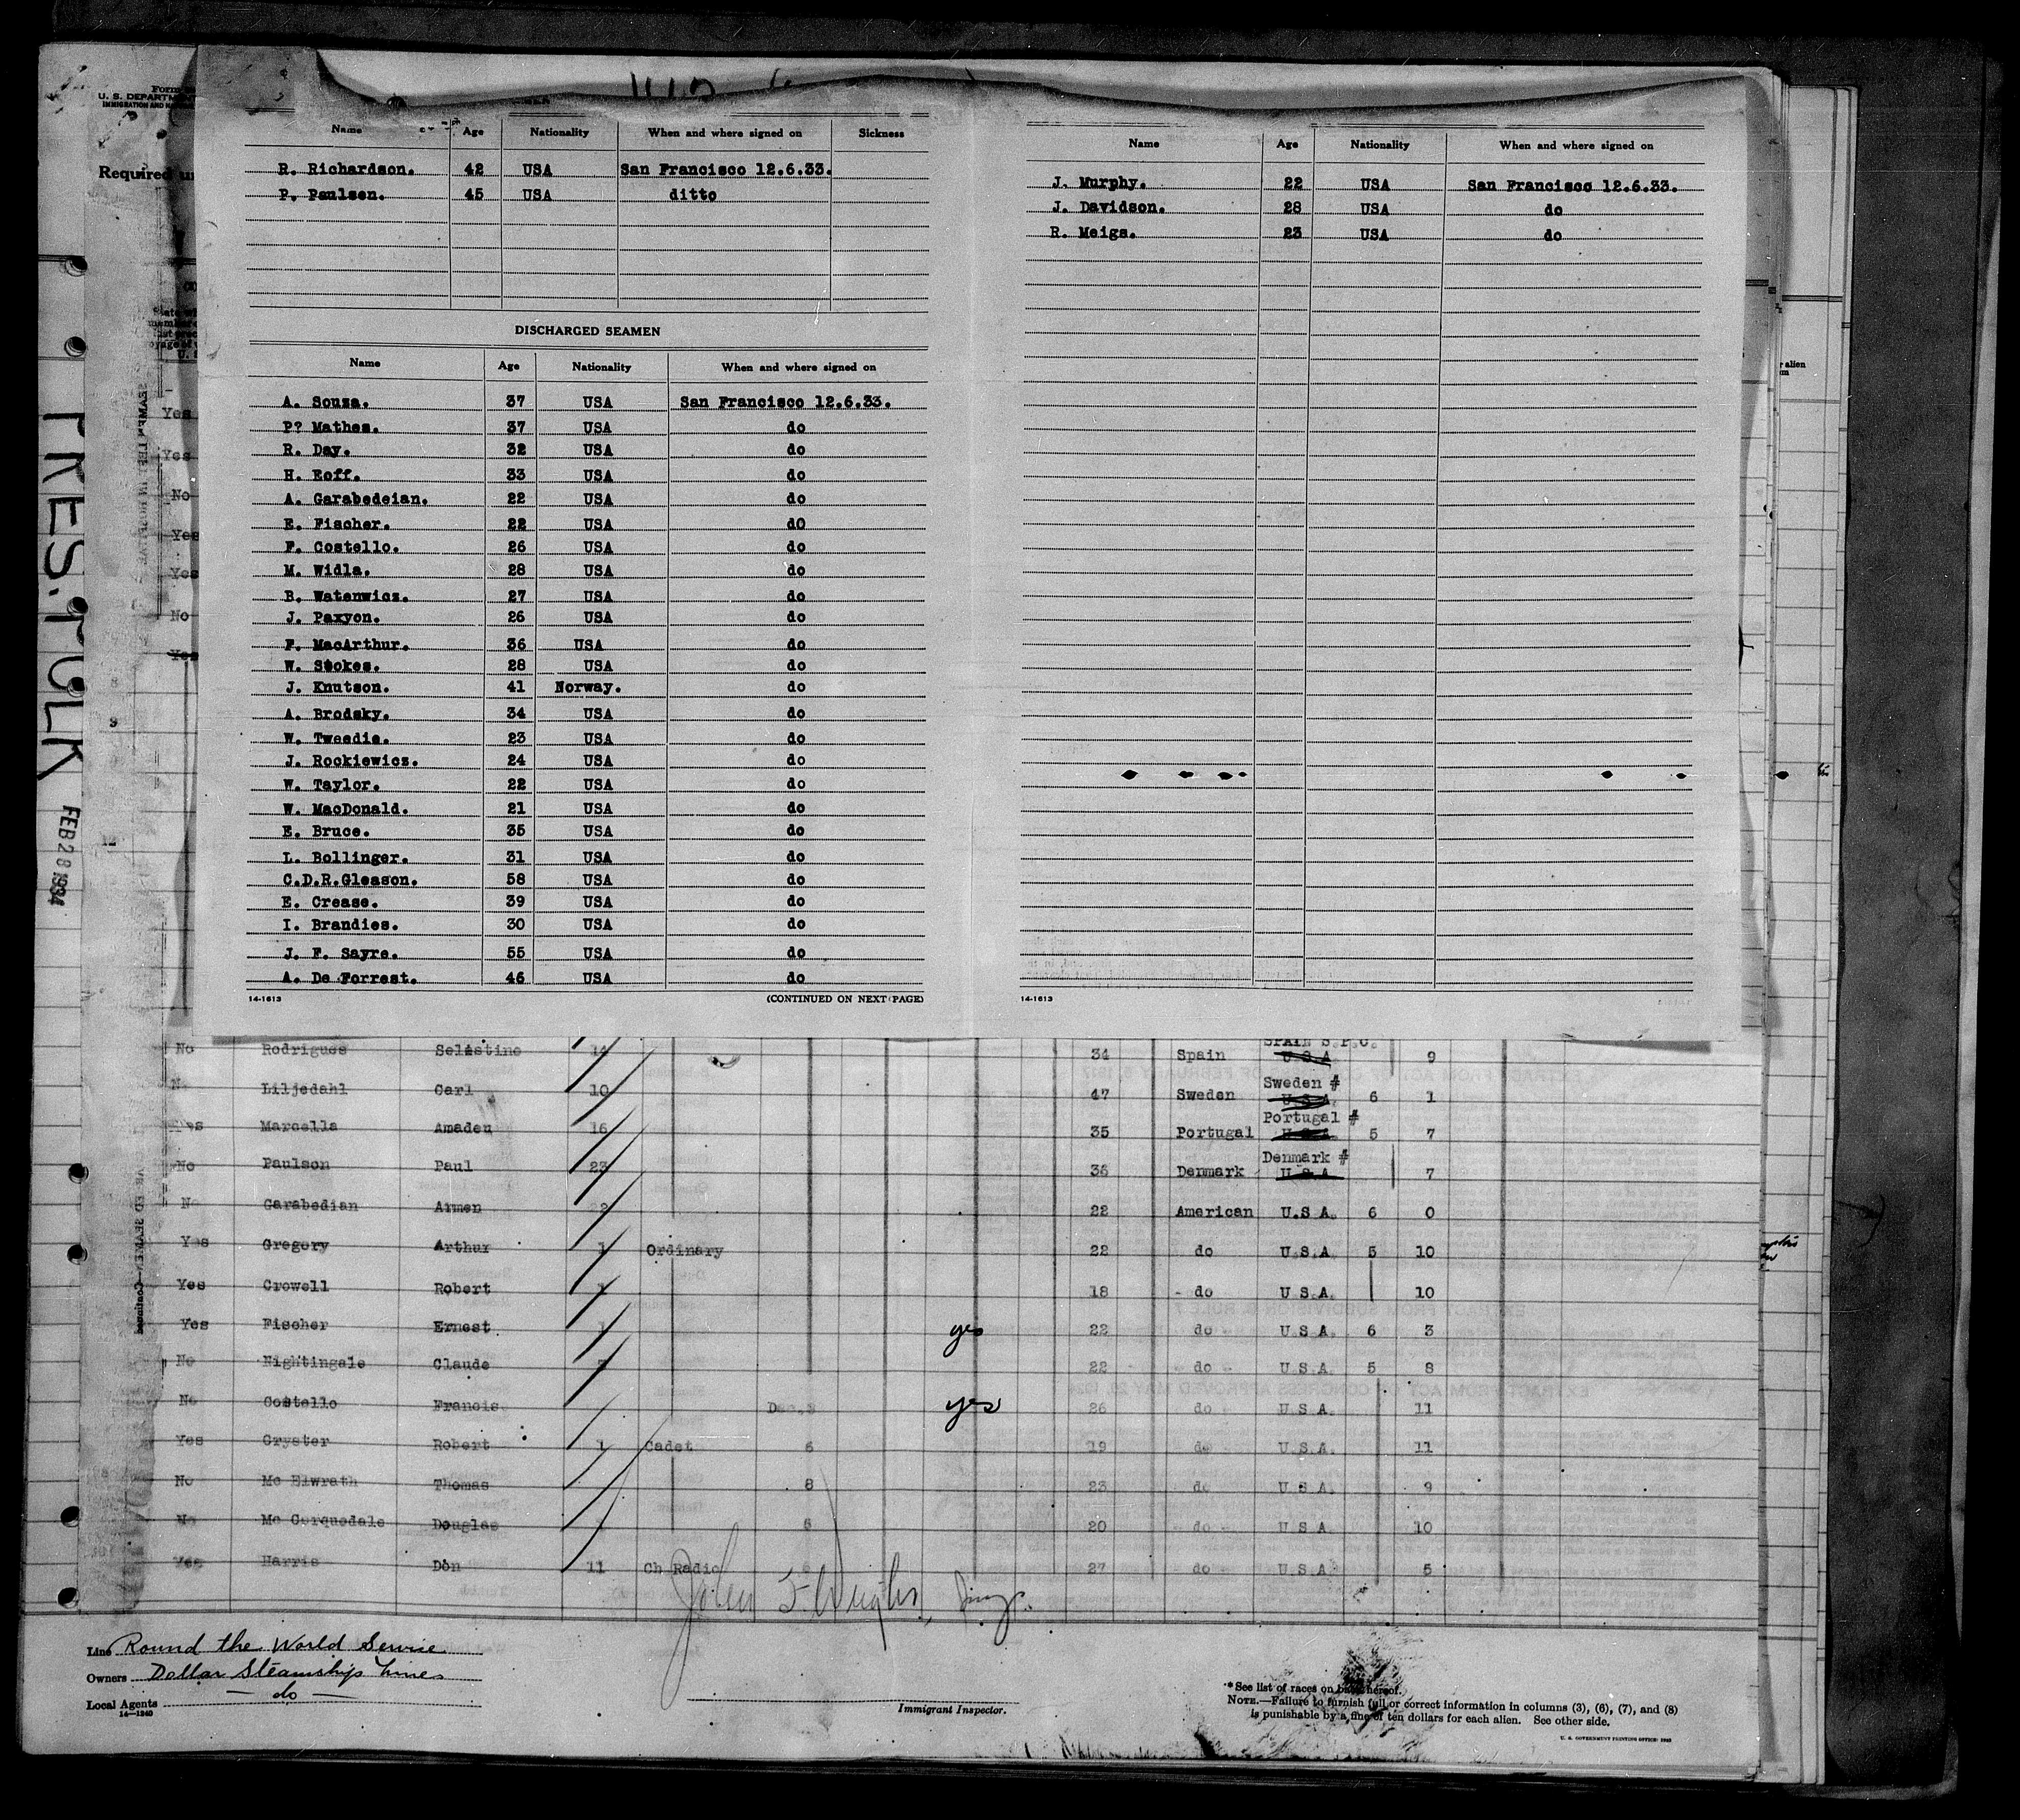 Form
U. S. DEPARTMENT
IMMIGRATION AND
Required un
PRES. POLK
FEB 28 1934
Name Age Nationality When and where signed on Sickness
R. Richardson. 42 USA San Francisco 12.6.33.
P. Paulsen. 45 USA ditto
DISCHARGED SEAMEN
Name Age Nationality When and where signed on
A. Souza. 37 USA San Francisco 12.6.33.
P? Mathes. 37 USA do
R. Day. 32 USA do
H. Roff. 33 USA do
A. Garabedeian. 22 USA do
E. Fischer. 22 USA dO
F. Costello. 26 USA do
M. Widla. 28 USA do
B. Watenwicz. 27 USA do
J. Paxyon. 26 USA do
F. MacArthur. 36 USA do
W. Stokes. 28 USA do
J. Knutson. 41 Norway. do
A. Brodsky. 34 USA do
W. Tweedie. 23 USA do
J. Rockiewicz. 24 USA do
W. Taylor. 22 USA do
W. MacDonald. 21 USA do
E. Bruce. 35 USA do
L. Bollinger. 31 USA do
C.D.R.Gleason. 58 USA do
E. Crease. 39 USA do
I. Brandies. 30 USA do
J. F. Sayre. 55 USA do
A. De Forrest. 46 USA do
14-1613 (CONTINUED ON NEXT PAGE)
Name Age Nationality When and where signed on
J. Murphy. 22 USA San Francisco 12.6.33.
J. Davidson. 28 USA do
R. Meigs. 23 USA do
14-1613
Yes
Yes
No
Yes
Yes
No
Yes
8
9
12
r alien
SPAIN S.P.C.
No Rodrigues Selestino 14 34 Spain U.S.A 9
Sweden #
Liljedahl Carl 10 47 Sweden U.S.A. 6 1
Portugal #
Yes Marcella Amadeu 16 35 Portugal U.S.A 5 7
Denmark #
No Paulson Paul 23 36 Denmark U.S.A 7
No Garabedian Armen 22 American U.S.A. 6 0
Yes Gregory Arthur 1 Ordinary 22 do U.S.A 5 10
Yes Crowell Robert 1 18 do U.S.A. 10
Yes Fischer Ernest 1 yes 22 do U.S.A 6 3
No Nightingale Claude 22 do U.S.A 5 8
No Costello Francis yes 26 do U.S.A. 11
Yes Gryster Robert 1 Cadet 6 19 do U.S.A. 11
No Mc Elwrath Thomas 8 23 do U.S.A. 9
No Mc Corquodale Douglas 6 20 do U.S.A 10
Yes Harris Don 11 Ch Radio 27 do U.S.A. 5
John F. Insp.
Line Round the World Service
Owners Dollar Steamship Lines
Local Agents — do —
14—1240
Immigrant Inspector.
* See list of races on back hereof.
NOTE.—Failure to furnish full or correct information in columns (3), (6), (7), and (8)
is punishable by a fine of ten dollars for each alien. See other side.
U. S. GOVERNMENT PRINTING OFFICE: 1932